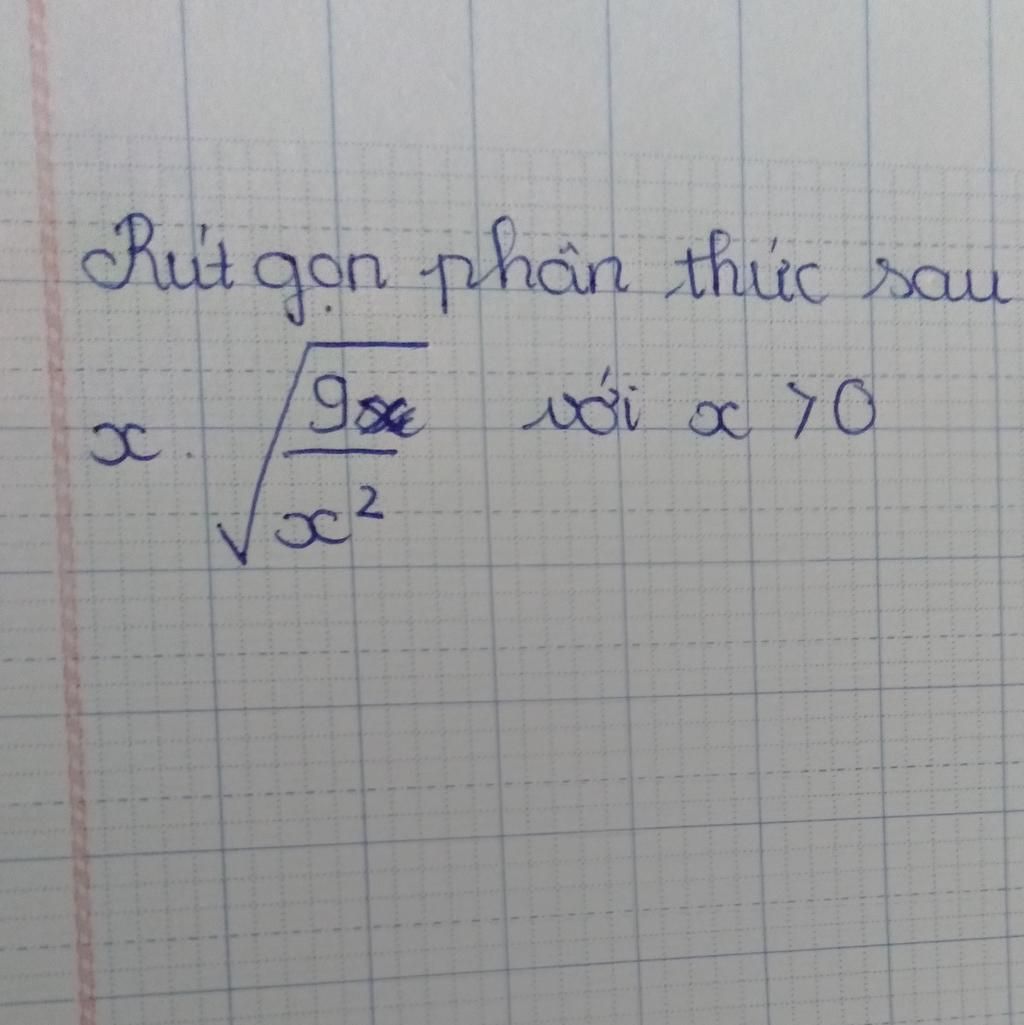 Rút gọn phân thức sau
x . √(9/x²) với x > 0